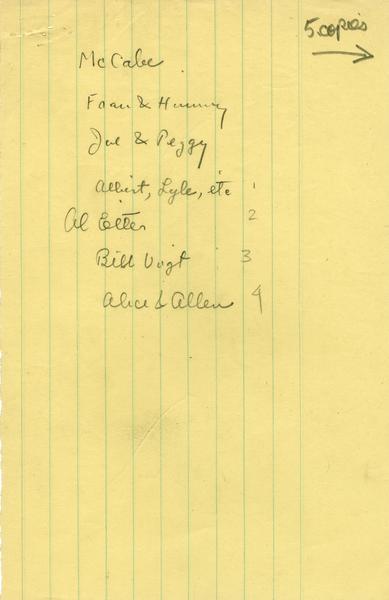 5 copies
McCabe
& Hummy
Joe & Peggy
Albert, Lyle, etc 1
Al Etter 2
Bill Vogt 3
Alice & Allen 4